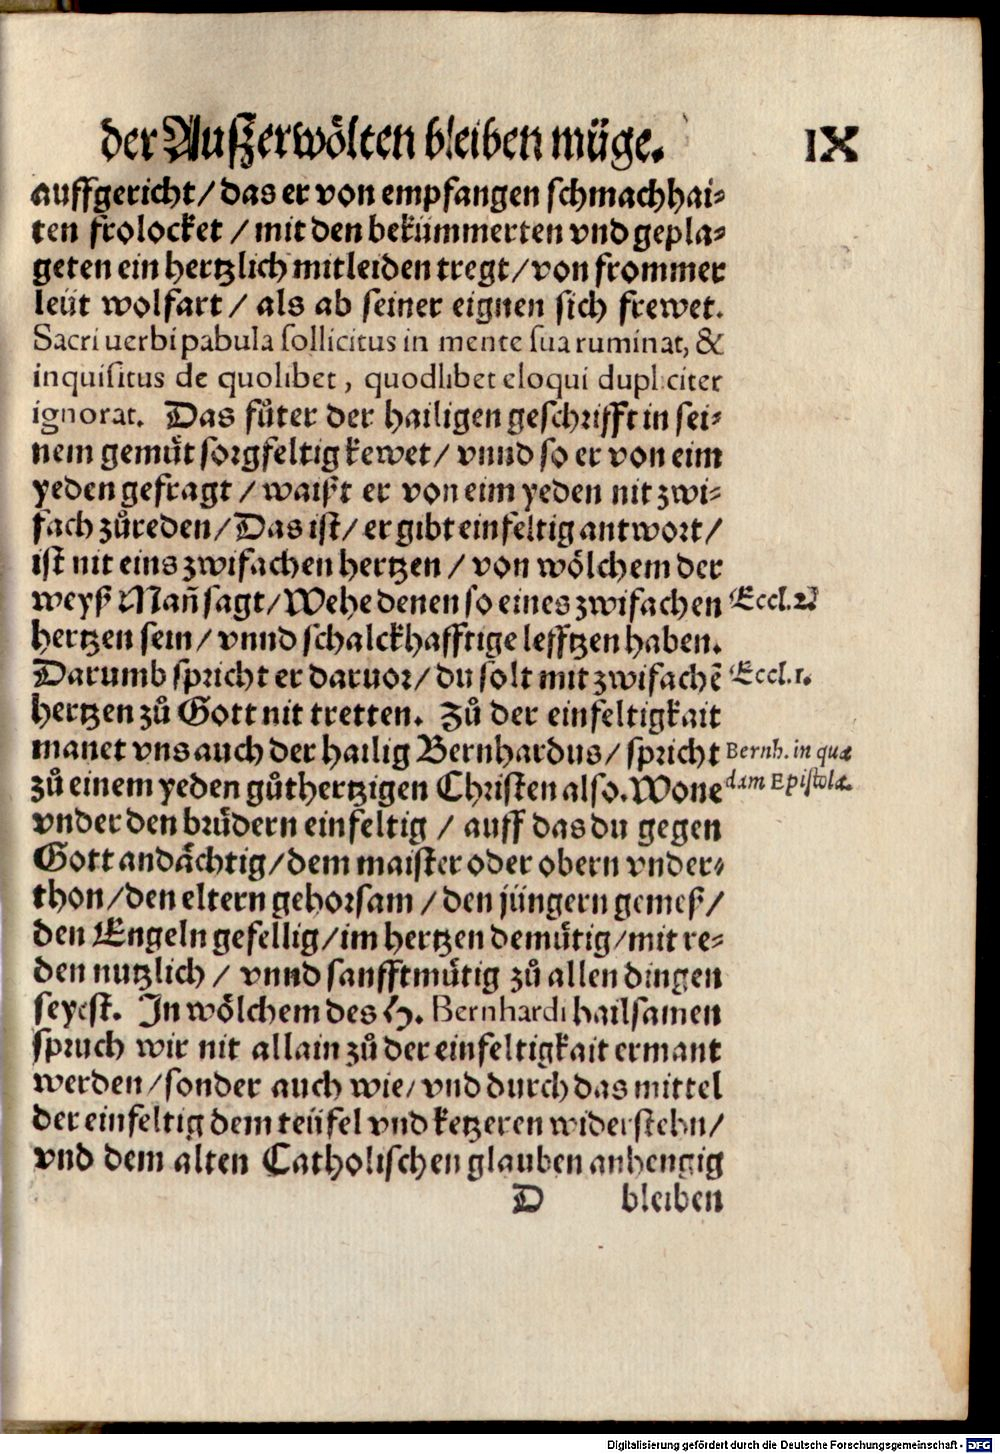 der Auſzerwoͤlten bleiben muͤge. IX
auffgericht / das er von empfangen schmachhai⸗
ten frolocket / mit den bekuͤmmerten vnd gepla⸗
geten ein hertzlich mitleiden tregt / von frommer
leüt wolfart / als ab seiner eignen sich frewet.
Sacri uerbi pabula sollicitus in mente sua ruminat, &
inquisitus de quolibet, quodlibet eloqui dupliciter
ignorat. Das fuͦter der hailigen geschrifft in sei⸗
nem gemuͤt sorgfeltig kewet / vnnd so er von eim
yeden gefragt / waißt er von eim yeden nit zwi⸗
fach zuͦreden / Das ist / er gibt einfeltig antwort /
ist nit eins zwifachen hertzen / von woͤlchem der
weyß Mañ sagt / Wehe denen so eines zwifachen
Eccl. 2
hertzen sein / vnnd schalckhafftige lefftzen haben.
Darumb spricht er daruor / du solt mit zwifachẽ
Eccl. 1.
hertzen zuͦ Gott nit tretten. Zuͦ der einfeltigkait
manet vns auch der hailig Bernhardus / spricht
Bernh. in quæ
zuͦ einem yeden guͦthertzigen Christen also. Wone
dam Epistola.
vnder den bruͤdern einfeltig / auff das du gegen
Gott andaͤchtig / dem maister oder obern vnder⸗
thon / den eltern gehorsam / den jüngern gemeß /
den Engeln gefellig / im hertzen demuͤtig / mit re⸗
den nutzlich / vnnd sanfftmuͤtig zuͦ allen dingen
seyest. In woͤlchem des H. Bernhardi hailsamen
spruch wir nit allain zuͦ der einfeltigkait ermant
werden / sonder auch wie / vnd durch das mittel
der einfeltig dem teüfel vnd ketzeren widerstehn /
vnd dem alten Catholischen glauben anhengig
D bleiben
Digitalisierung gefördert durch die Deutsche Forschungsgemeinschaft - DFG